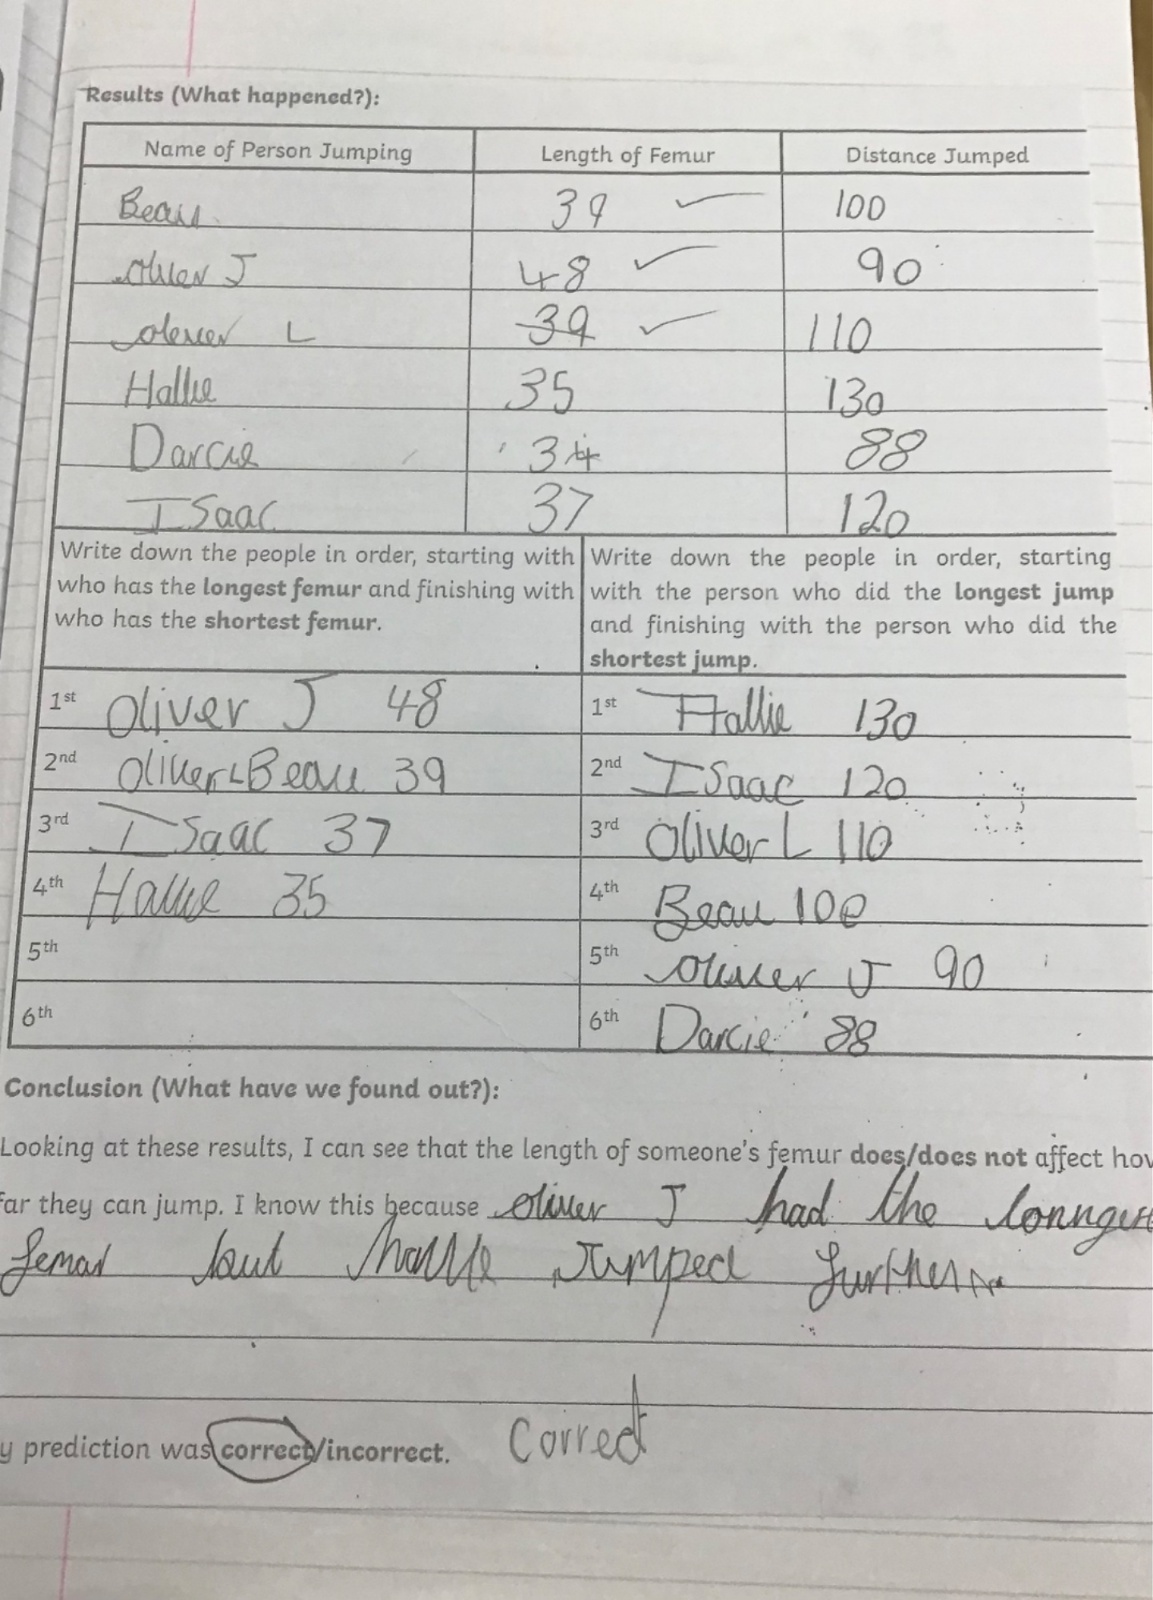 Results (What happened?):
Name of Person Jumping Length of Femur Distance Jumped
Beau 39 100
Oliver J 48 90
oliver L 39 110
Hallie 35 130
Darcie 34 88
Isaac 37 120
Write down the people in order, starting with who has the longest femur and finishing with who has the shortest femur.
Write down the people in order, starting with the person who did the longest jump and finishing with the person who did the shortest jump.
1st Oliver J 48 1st Hallie 130
2nd Oliver L Beau 39 2nd Isaac 120
3rd Isaac 37 3rd Oliver L 110
4th Hallie 35 4th Beau 100
5th 5th oliver J 90
6th 6th Darcie 88
Conclusion (What have we found out?):
Looking at these results, I can see that the length of someone's femur does/does not affect how
far they can jump. I know this because oliver J had the
femar but hallie Jumped
y prediction was correct/incorrect. Correct